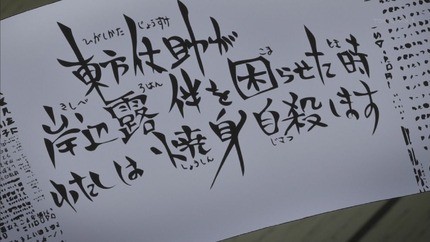 ひがしかた じょうすけ
東方仗助が
きしべ ろはん こま とき
岸辺露伴を困らせた時
わたしは焼身自殺します
しょうしん じさつ